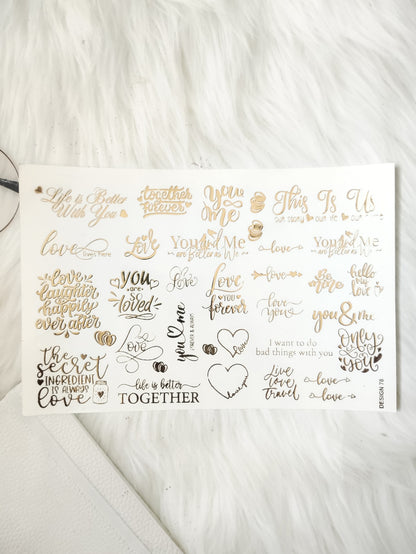 Life is Better
With You
together
forever
You
&
me
This Is Us
our story our life our
love
lives here
Love
You and Me
are Better as We
love
You and Me
are Better as We
love
laughter
& happily
ever after
you
are
so
loved
Love
Love
you
forever
love
Be
mine
hello
my
love
love
you
you & me
Only
you
you me
FOREVER & ALWAYS
Love
love
I want to do
bad things with you
the
secret
INGREDIENT
IS ALWAYS
love
life is better
TOGETHER
love you
Live
love
Travel
love
love
DESIGN 78